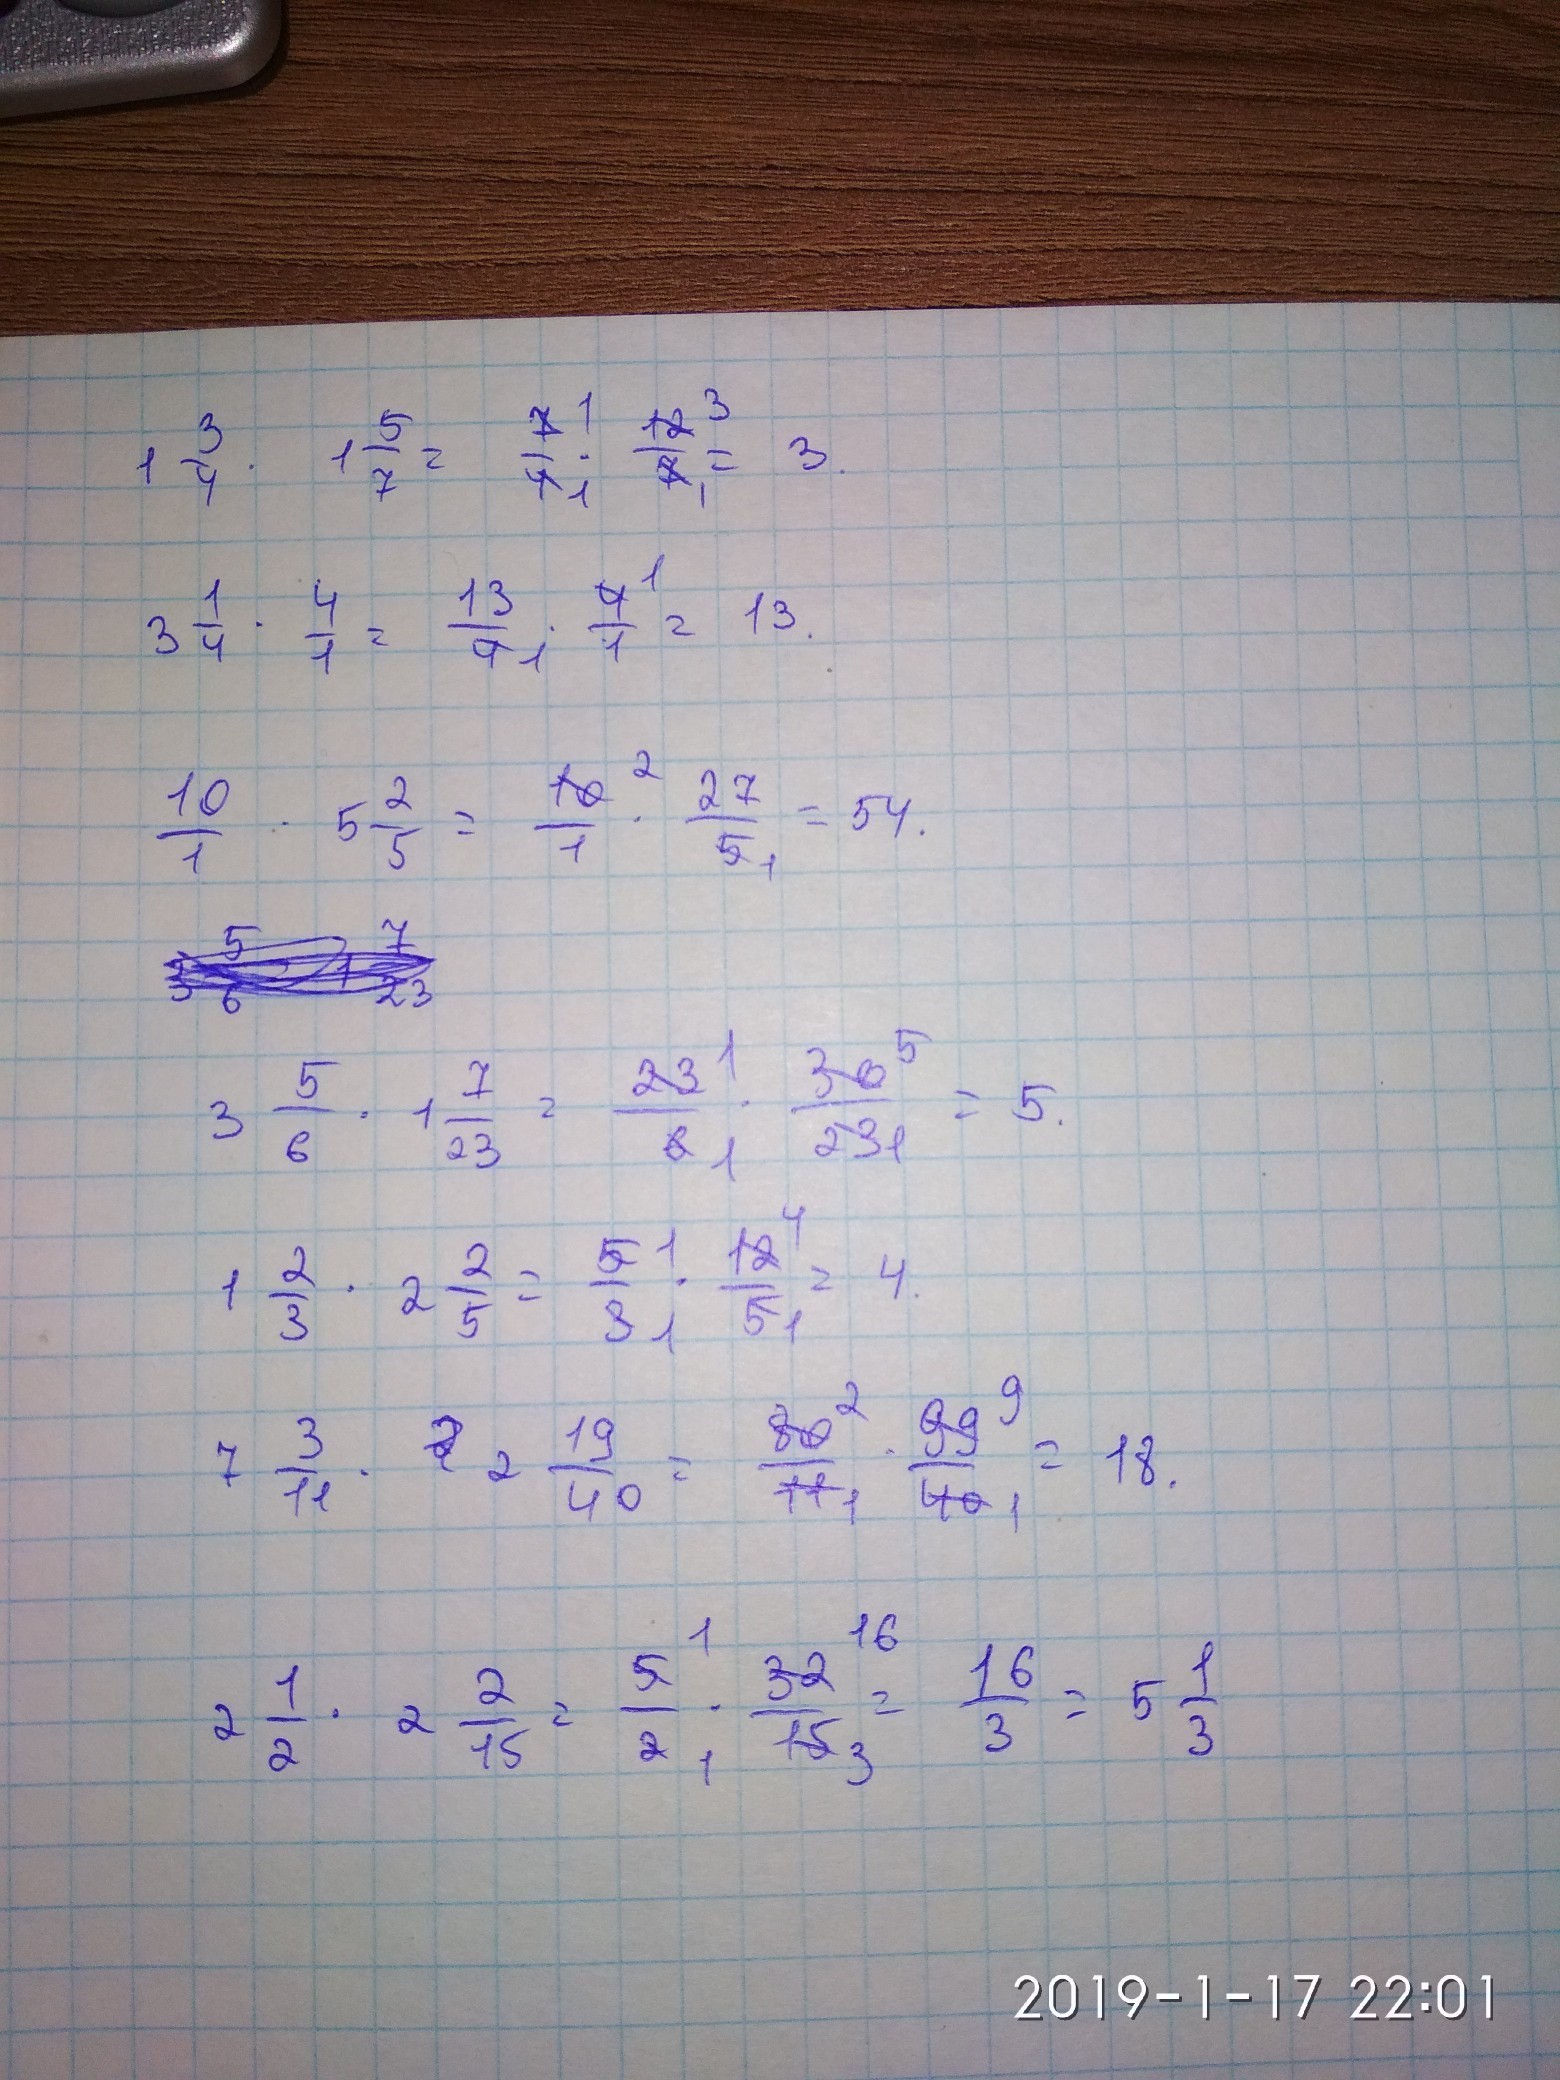 1 3/4 · 1 5/7 = 7/4 1 1 · 12/7 3 1 = 3.
3 1/4 · 4/1 = 13/4 1 · 4/1 1 = 13.
10/1 · 5 2/5 = 10/1 2 · 27/5 1 = 54.
3 5/6 1 7/23
3 5/6 · 1 7/23 = 23/6 1 1 · 30/23 5 1 = 5.
1 2/3 · 2 2/5 = 5/3 1 1 · 12/5 4 1 = 4.
7 3/11 · 2 19/40 = 80/11 2 1 · 99/40 9 1 = 18.
2 1/2 · 2 2/15 = 5/2 1 1 · 32/15 16 3 = 16/3 = 5 1/3
2019-1-17 22:01